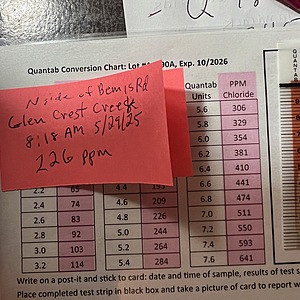 Quantab Conversion Chart: Lot 90A, Exp. 10/2026
N side of Bemis Rd
Glen Crest Creek
8:18 AM 5/29/25
226 ppm
Quantab Units PPM Chloride
5.6 306
5.8 329
6.0 354
6.2 381
6.4 410
2.2 65 4.4 193 6.6 441
2.4 74 4.6 209 6.8 474
2.6 83 4.8 226 7.0 511
2.8 92 5.0 244 7.2 550
3.0 103 5.2 264 7.4 593
3.2 114 5.4 284 7.6 641
Write on a post-it and stick to card: date and time of sample, results of test s
Place completed test strip in black box and take a picture of card to report w